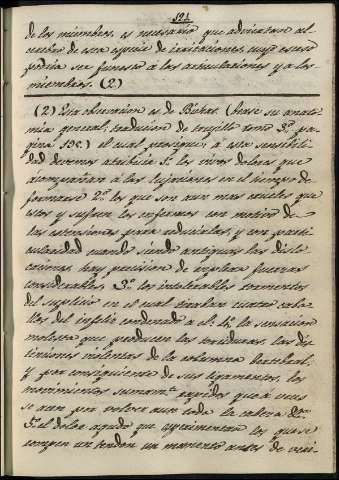 121
de los miembros es necesario que advirtiese al
centro de esta especie de irritaciones, cuyo exceso
podria ser funesto á las articulaciones y á los
miembros. (2)
(2) Esta observacion es de Bichat. (vease su anato-
mia general, traducion de Trujillo tomo 3º pa-
gina 190.) el cual prosigue; á esta sensibili-
dad devemos atribuir 1º los vivos dolores que
acompañan á las lujaciones en el tiempo de
formarse 2º los que son aun mas crueles que
estos y sufren los enfermos con motivo de
las estensiones para reducirlas, y con parti-
cularidad cuando siendo antiguas las dislo-
caciones hay precision de emplear fuerzas
considerables, 3º los intolerables tormentos
del suplicio en el cual tiraban cuatro caba-
llos del infeliz condenado á el: 4º la sensacion
molesta que producen las torceduras, las dis-
tensiones violentas de la columna bertebral,
y por consiguiente de sus ligamentos, los
movimientos sumamte rapidos que á veces
se acen por volver aun lado la cabeza &ª
5º el dolor agudo que esperimentan los que se
rompen un tendon un momento antes de veri-